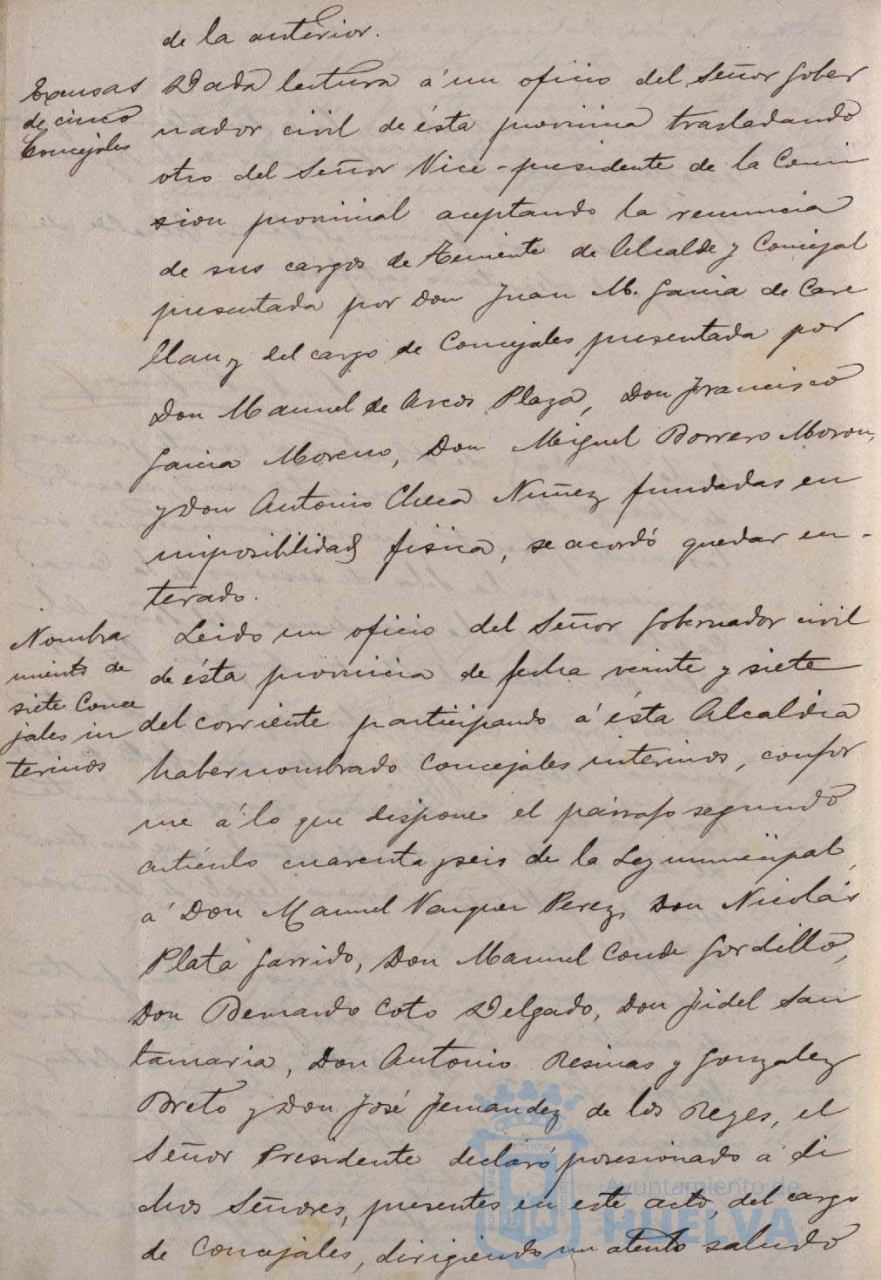 de la anterior.
Excusas
de cinco
Concejales
Dada lectura á un oficio del Señor Gober
nador civil de ésta provincia trasladando
otro del Señor Vice-presidente de la Comi
sion provincial aceptando la renuncia
de sus cargos de Teniente de Alcalde y Concejal
presentada por Don Juan M. Garcia de Care
llan y del cargo de Concejales presentada por
Don Manuel de Arcos Plaza, Don Francisco
Garcia Moreno, Don Miguel Borrero Moron,
y Don Antonio Checa Nuñez fundadas en
imposibilidad fisica, se acordó quedar en-
terado.
Nombra
miento de
siete Conce
jales in
terinos
Leido un oficio del Señor Gobernador civil
de ésta provincia de fecha veinte y siete
del corriente participando á ésta Alcaldia
haber nombrado Concejales interinos, confor
me á lo que dispone el párrafo segundo
artículo cuarenta y seis de la Ley municipal,
á Don Manuel Vazquez Perez, Don Nicolás
Plata Garrido, Don Manuel Conde Gordillo,
Don Bernardo Coto Delgado, Don Fidel San
tamaria, Don Antonio Resinas y Gonzalez
Breto y Don José Fernandez de los Reyes, el
Señor Presidente declaró posesionado á di
chos Señores, presentes en este acto, del cargo
de Concejales, dirigiendo un atento saludo
Ayuntamiento de
HUELVA